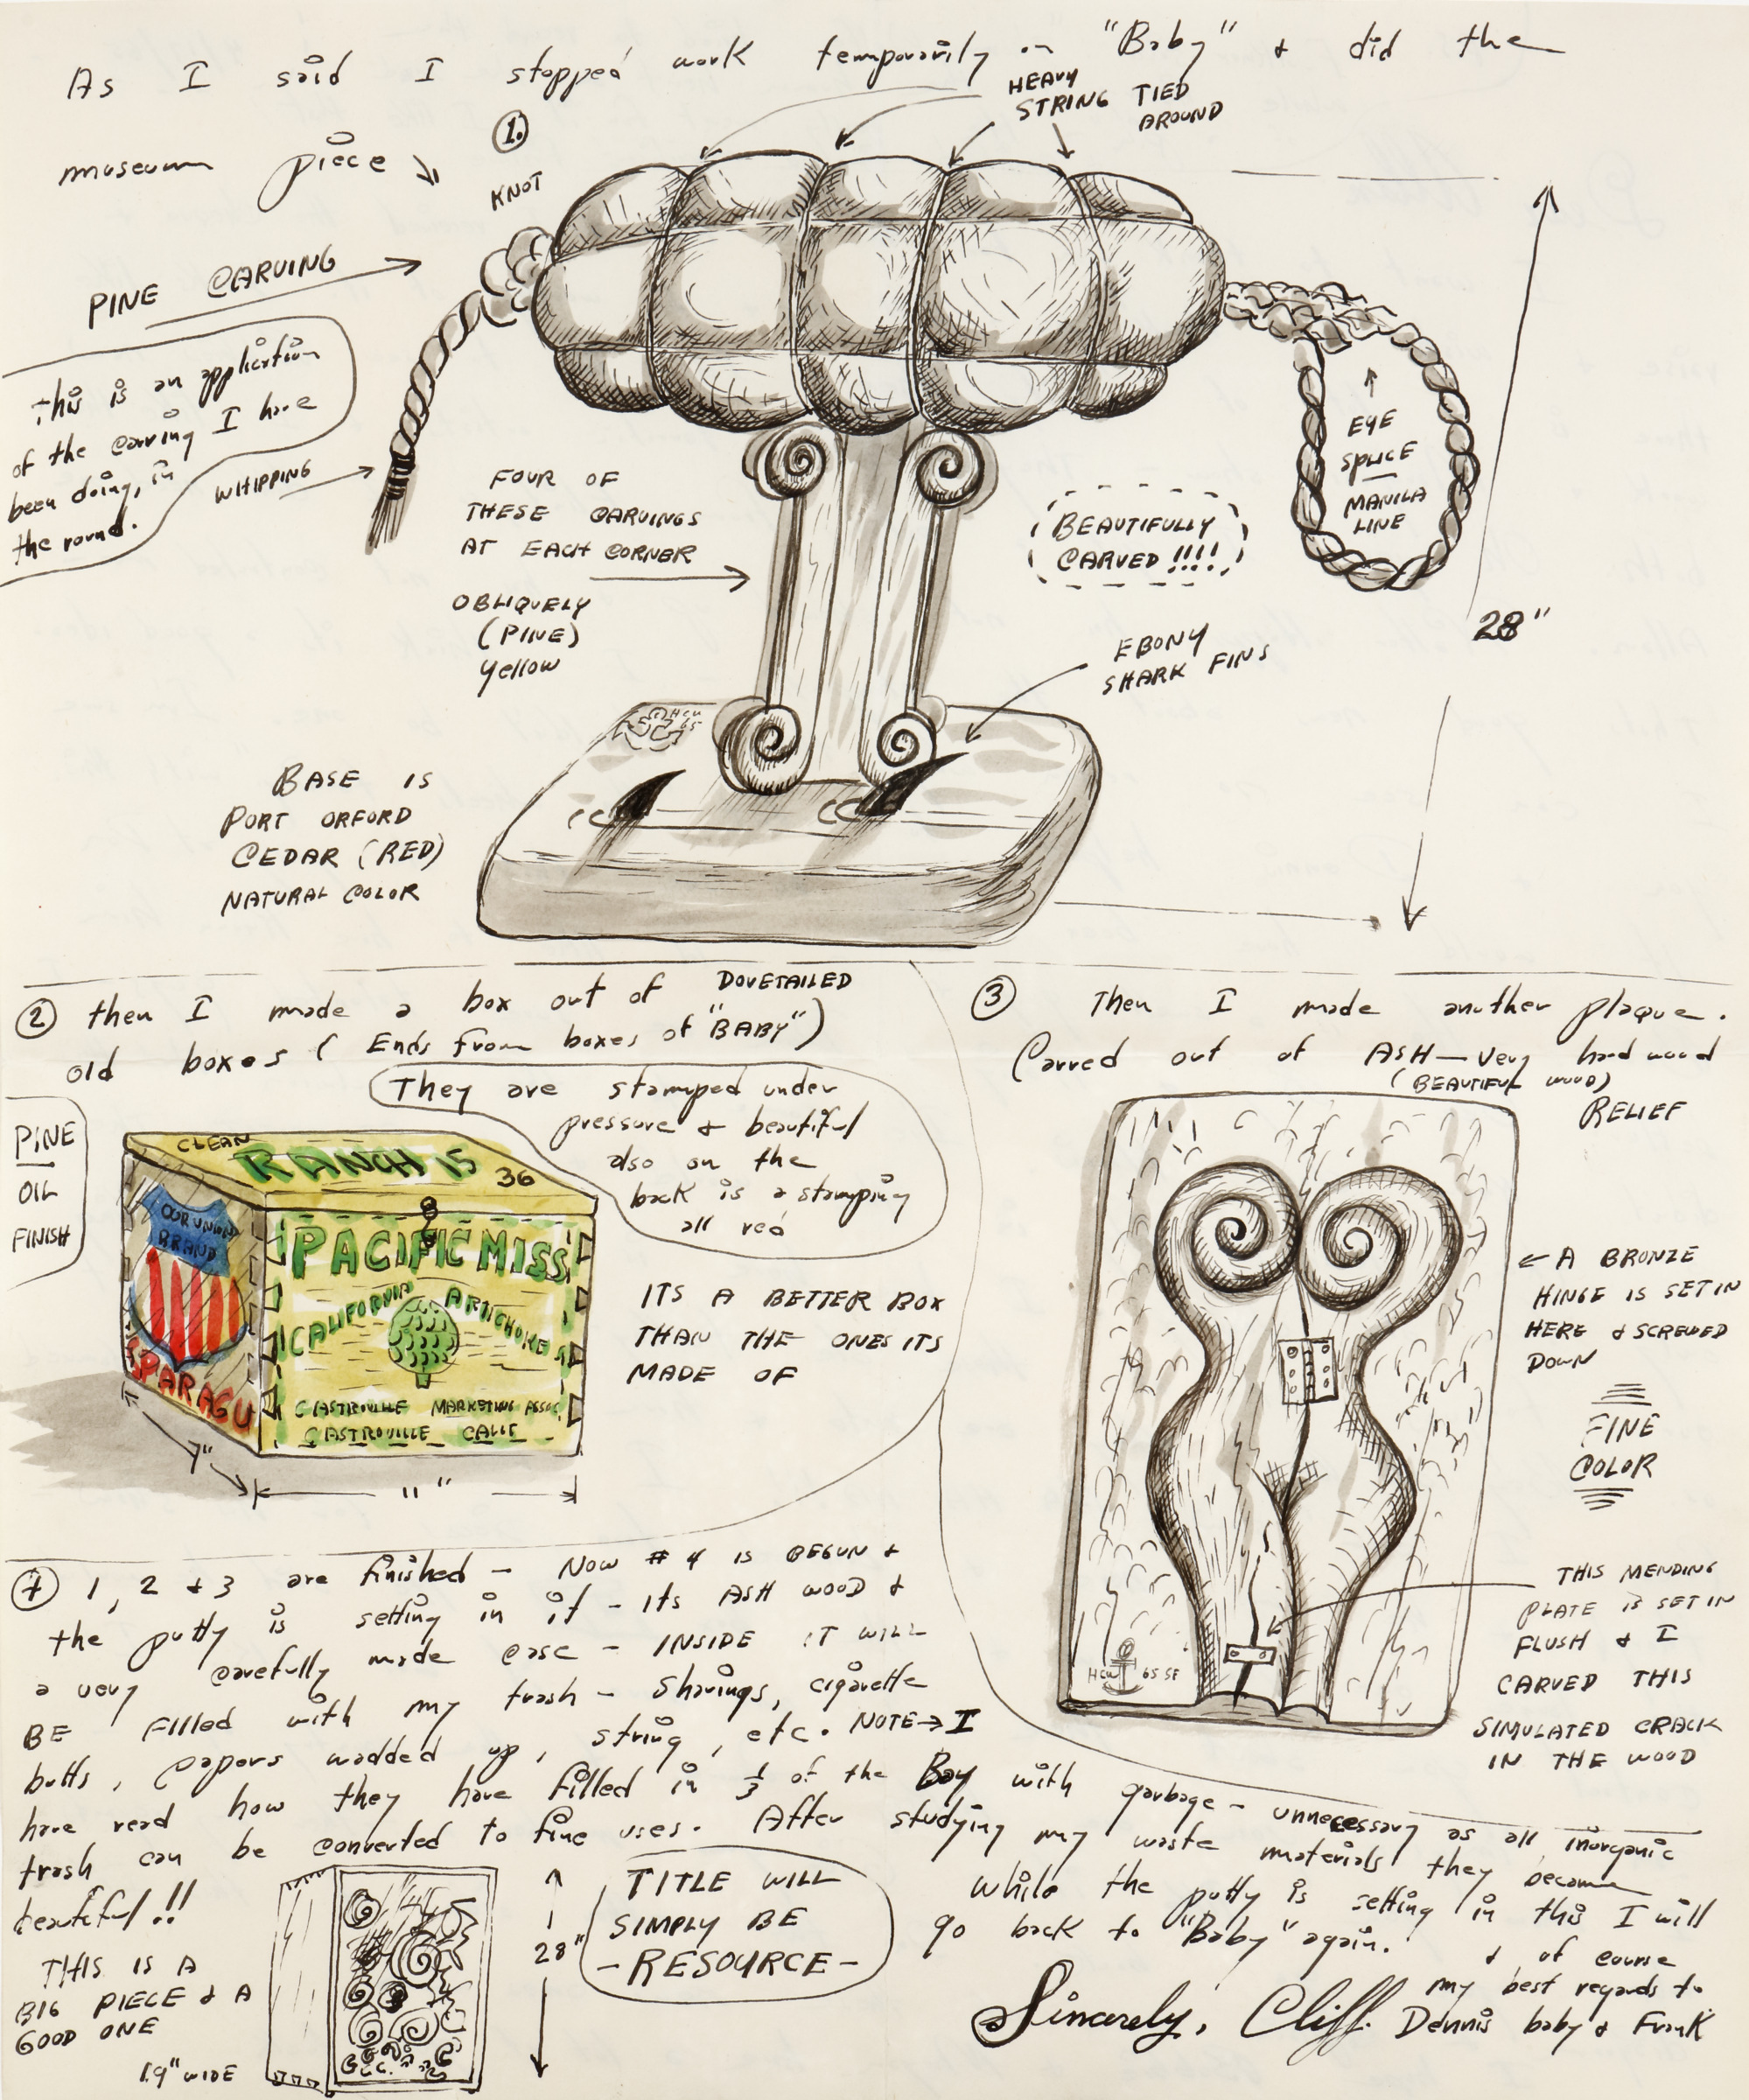 As I said I stopped work temporarily on "Baby" & did the
museum piece
1.
HEAVY
STRING TIED
AROUND
KNOT
PINE CARVING
This is an application
of the carving I have
been doing, in
the round.
WHIPPING
EYE
SPLICE
MANILA
LINE
FOUR OF
THESE CARVINGS
AT EACH CORNER
OBLIQUELY
(PINE)
Yellow
BEAUTIFULLY
CARVED !!!!
28"
EBONY
SHARK FINS
HCW
65
BASE IS
PORT ORFORD
CEDAR (RED)
NATURAL COLOR
2 then I made a box out of DOVETAILED
old boxes (Ends from boxes of "BABY")
They are stamped under
pressure & beautiful
also on the
back is a stamping
all red
PINE
OIL
FINISH
CLEAN
RANCH 15
36
OUR UNION
BRAND
SPARAGU
PACIFIC MISS
CALIFORNIA ARTICHOKES
CASTROVILLE MARKETING ASSOC
CASTROVILLE CALIF
7"
11"
ITS A BETTER BOX
THAN THE ONES ITS
MADE OF
3 Then I made another plaque.
Carved out of ASH — very hard wood
(BEAUTIFUL WOOD)
RELIEF
A BRONZE
HINGE IS SET IN
HERE & SCREWED
DOWN
FINE
COLOR
THIS MENDING
PLATE IS SET IN
FLUSH & I
CARVED THIS
SIMULATED CRACK
IN THE WOOD
HCW 65 SF
4 1, 2 & 3 are finished - NOW # 4 IS BEGUN &
the putty is setting in it - its ASH WOOD &
a very carefully made case - INSIDE IT WILL
BE FILLED with my trash - shavings, cigarette
butts, papers wadded up, string, etc. NOTE → I
have read how they have filled in 1/3 of the Bay with garbage - unnecessary as all inorganic
trash can be converted to fine uses. After studying my waste materials they became
beautiful!!
while the putty is setting in this I will
go back to "Baby" again.
THIS IS A
BIG PIECE & A
GOOD ONE
19" WIDE
28"
TITLE WILL
SIMPLY BE
- RESOURCE -
& of course
my best regards to
Sincerely, Cliff. Dennis baby & Frank